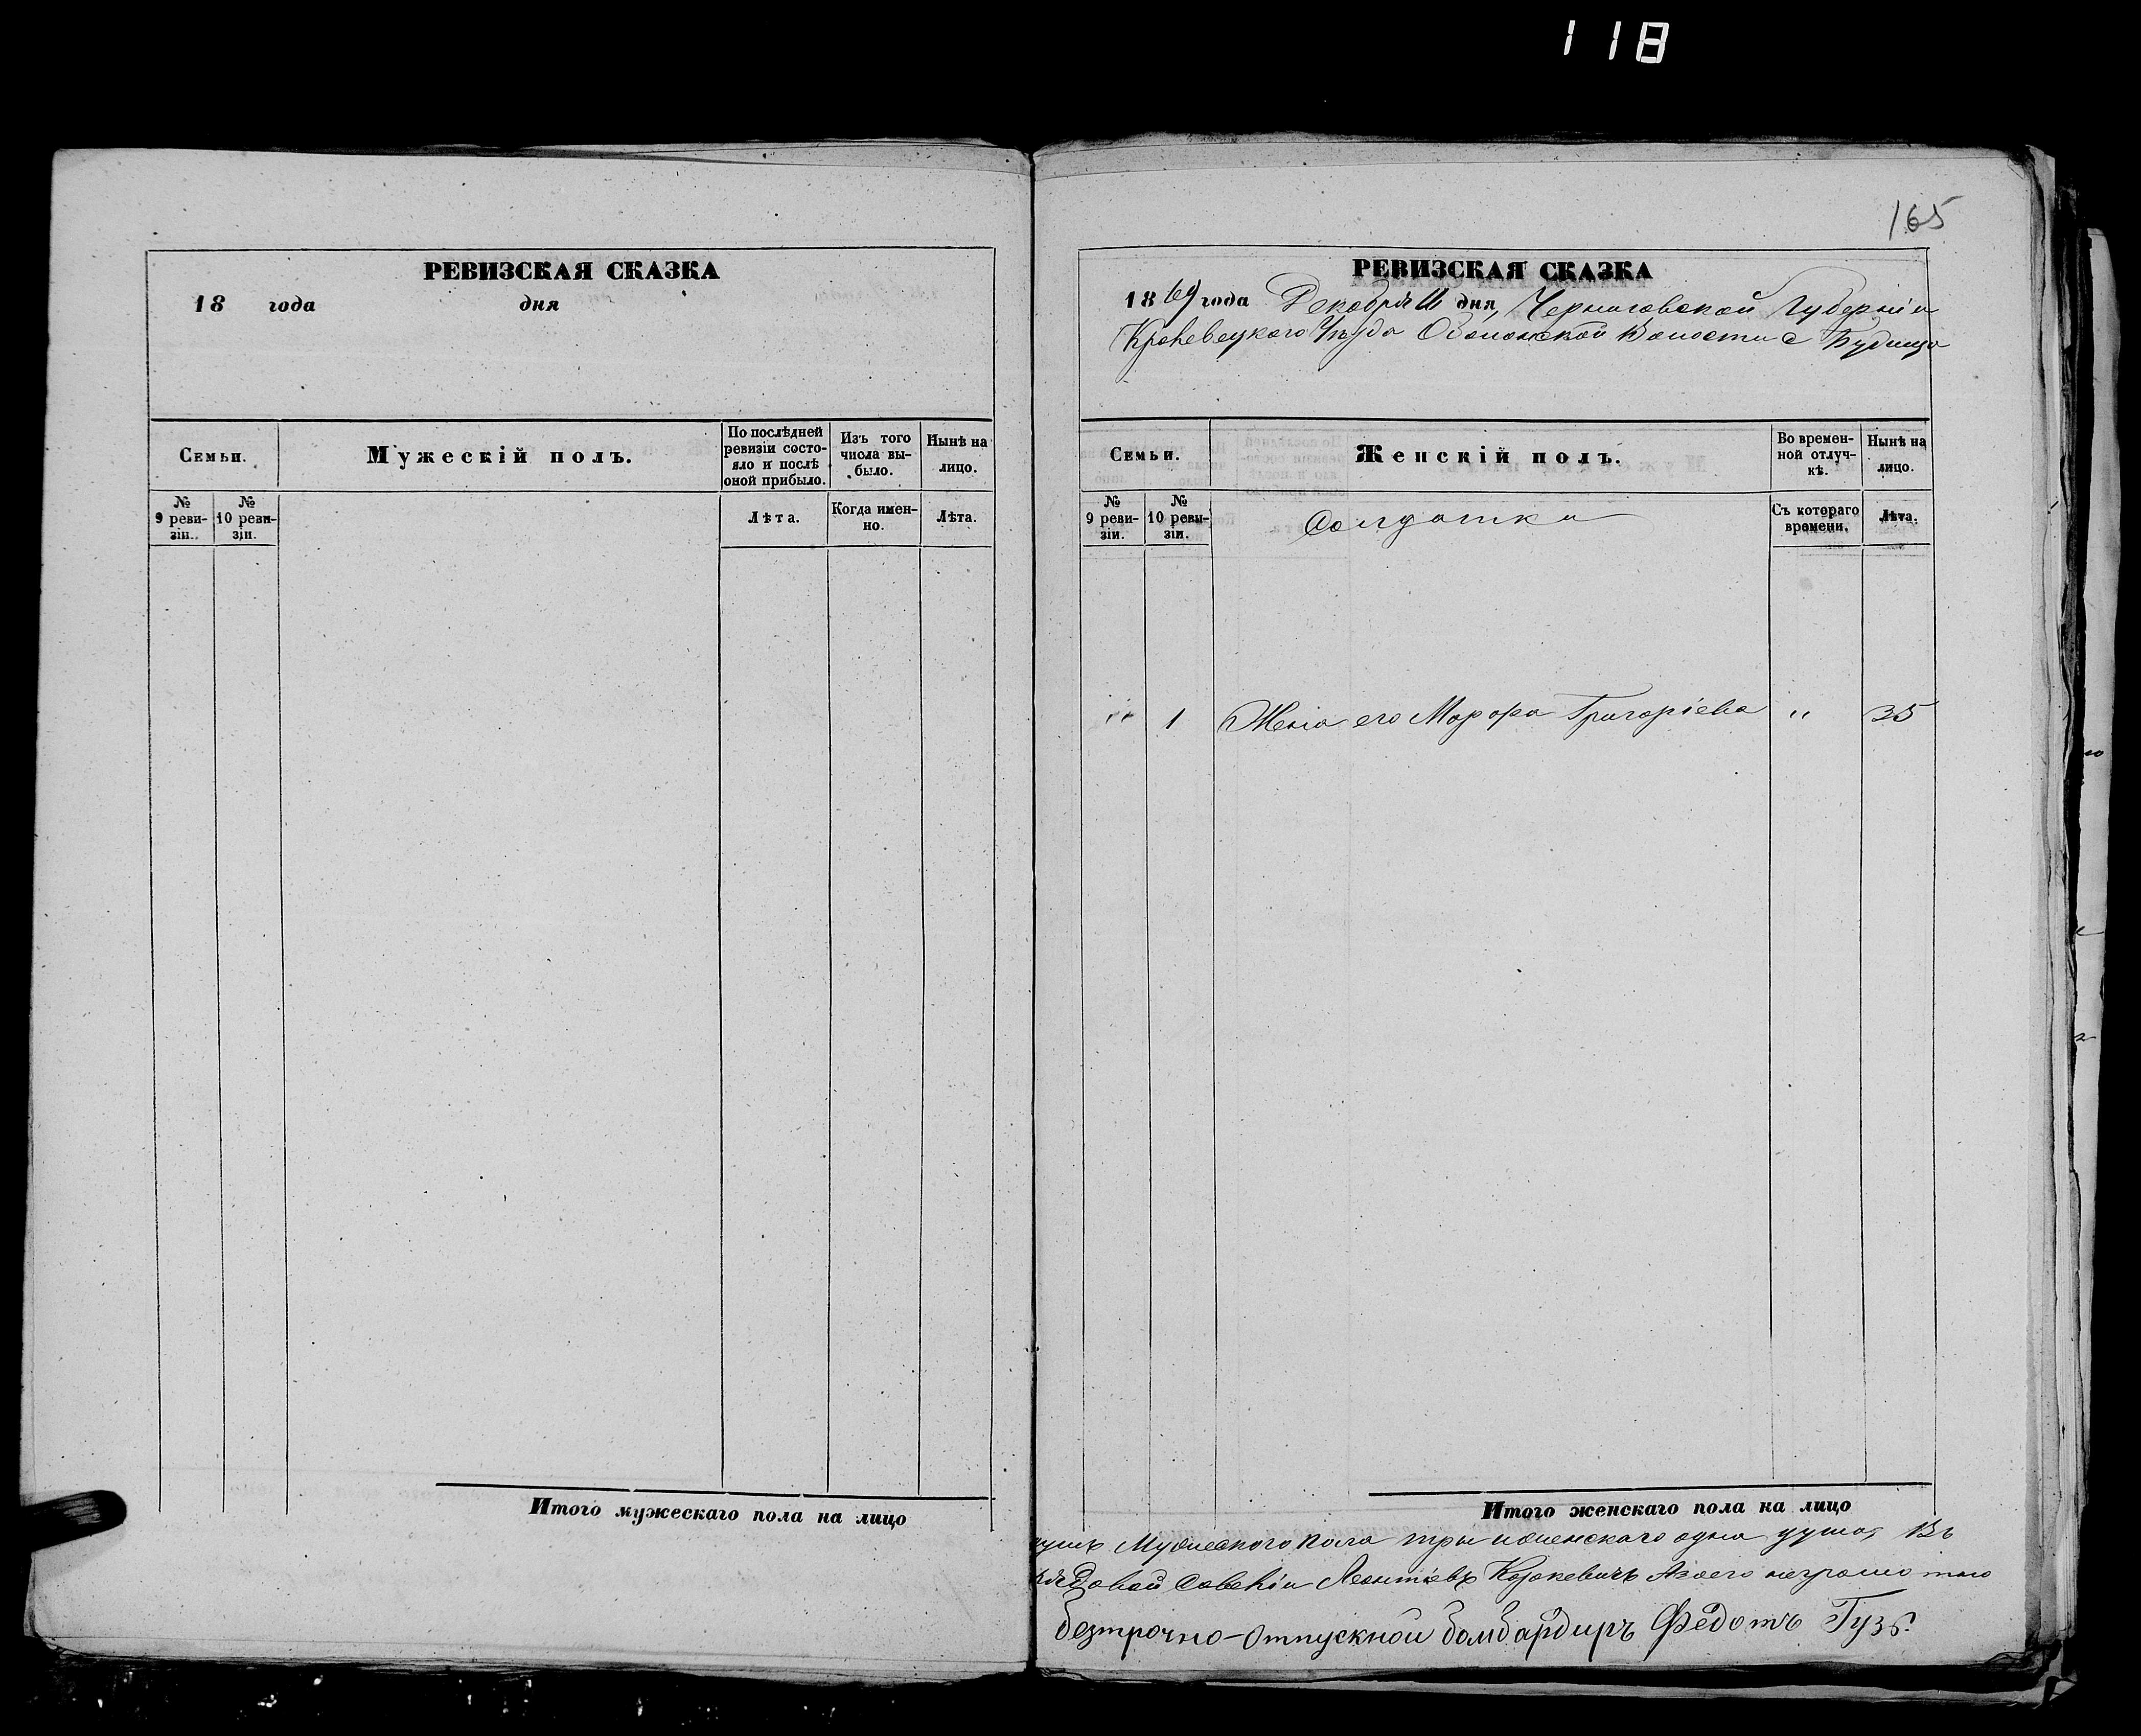 118
165
РЕВИЗСКАЯ СКАЗКА
18 года дня
Семьи.
Мужескій полъ.
По послѣдней ревизіи состояло и послѣ оной прибыло.
Изъ того числа выбыло.
Нынѣ на лицо.
№ 9 ревизіи.
№ 10 ревизіи.
Лѣта.
Когда именно.
Лѣта.
Итого мужескаго пола на лицо
РЕВИЗСКАЯ СКАЗКА
1869 года Декабря 11 дня, Черниговской Губерніи
Кролевецкого Уѣзда Обонской Волости с Будища
Семьи.
Женскій полъ.
Во временной отлучкѣ.
Нынѣ на лицо.
№ 9 ревизіи.
№ 10 ревизіи.
Солдатки
Съ котораго времени.
Лѣта.
" 1 Жена его Марфа Григоріева " 35
Итого женскаго пола на лицо
Мужескаго пола три и женскаго одна душа, Въ
Леонтіевъ неграмотно
безтрочно-отпускной бомбардиръ Федотъ Гузъ.